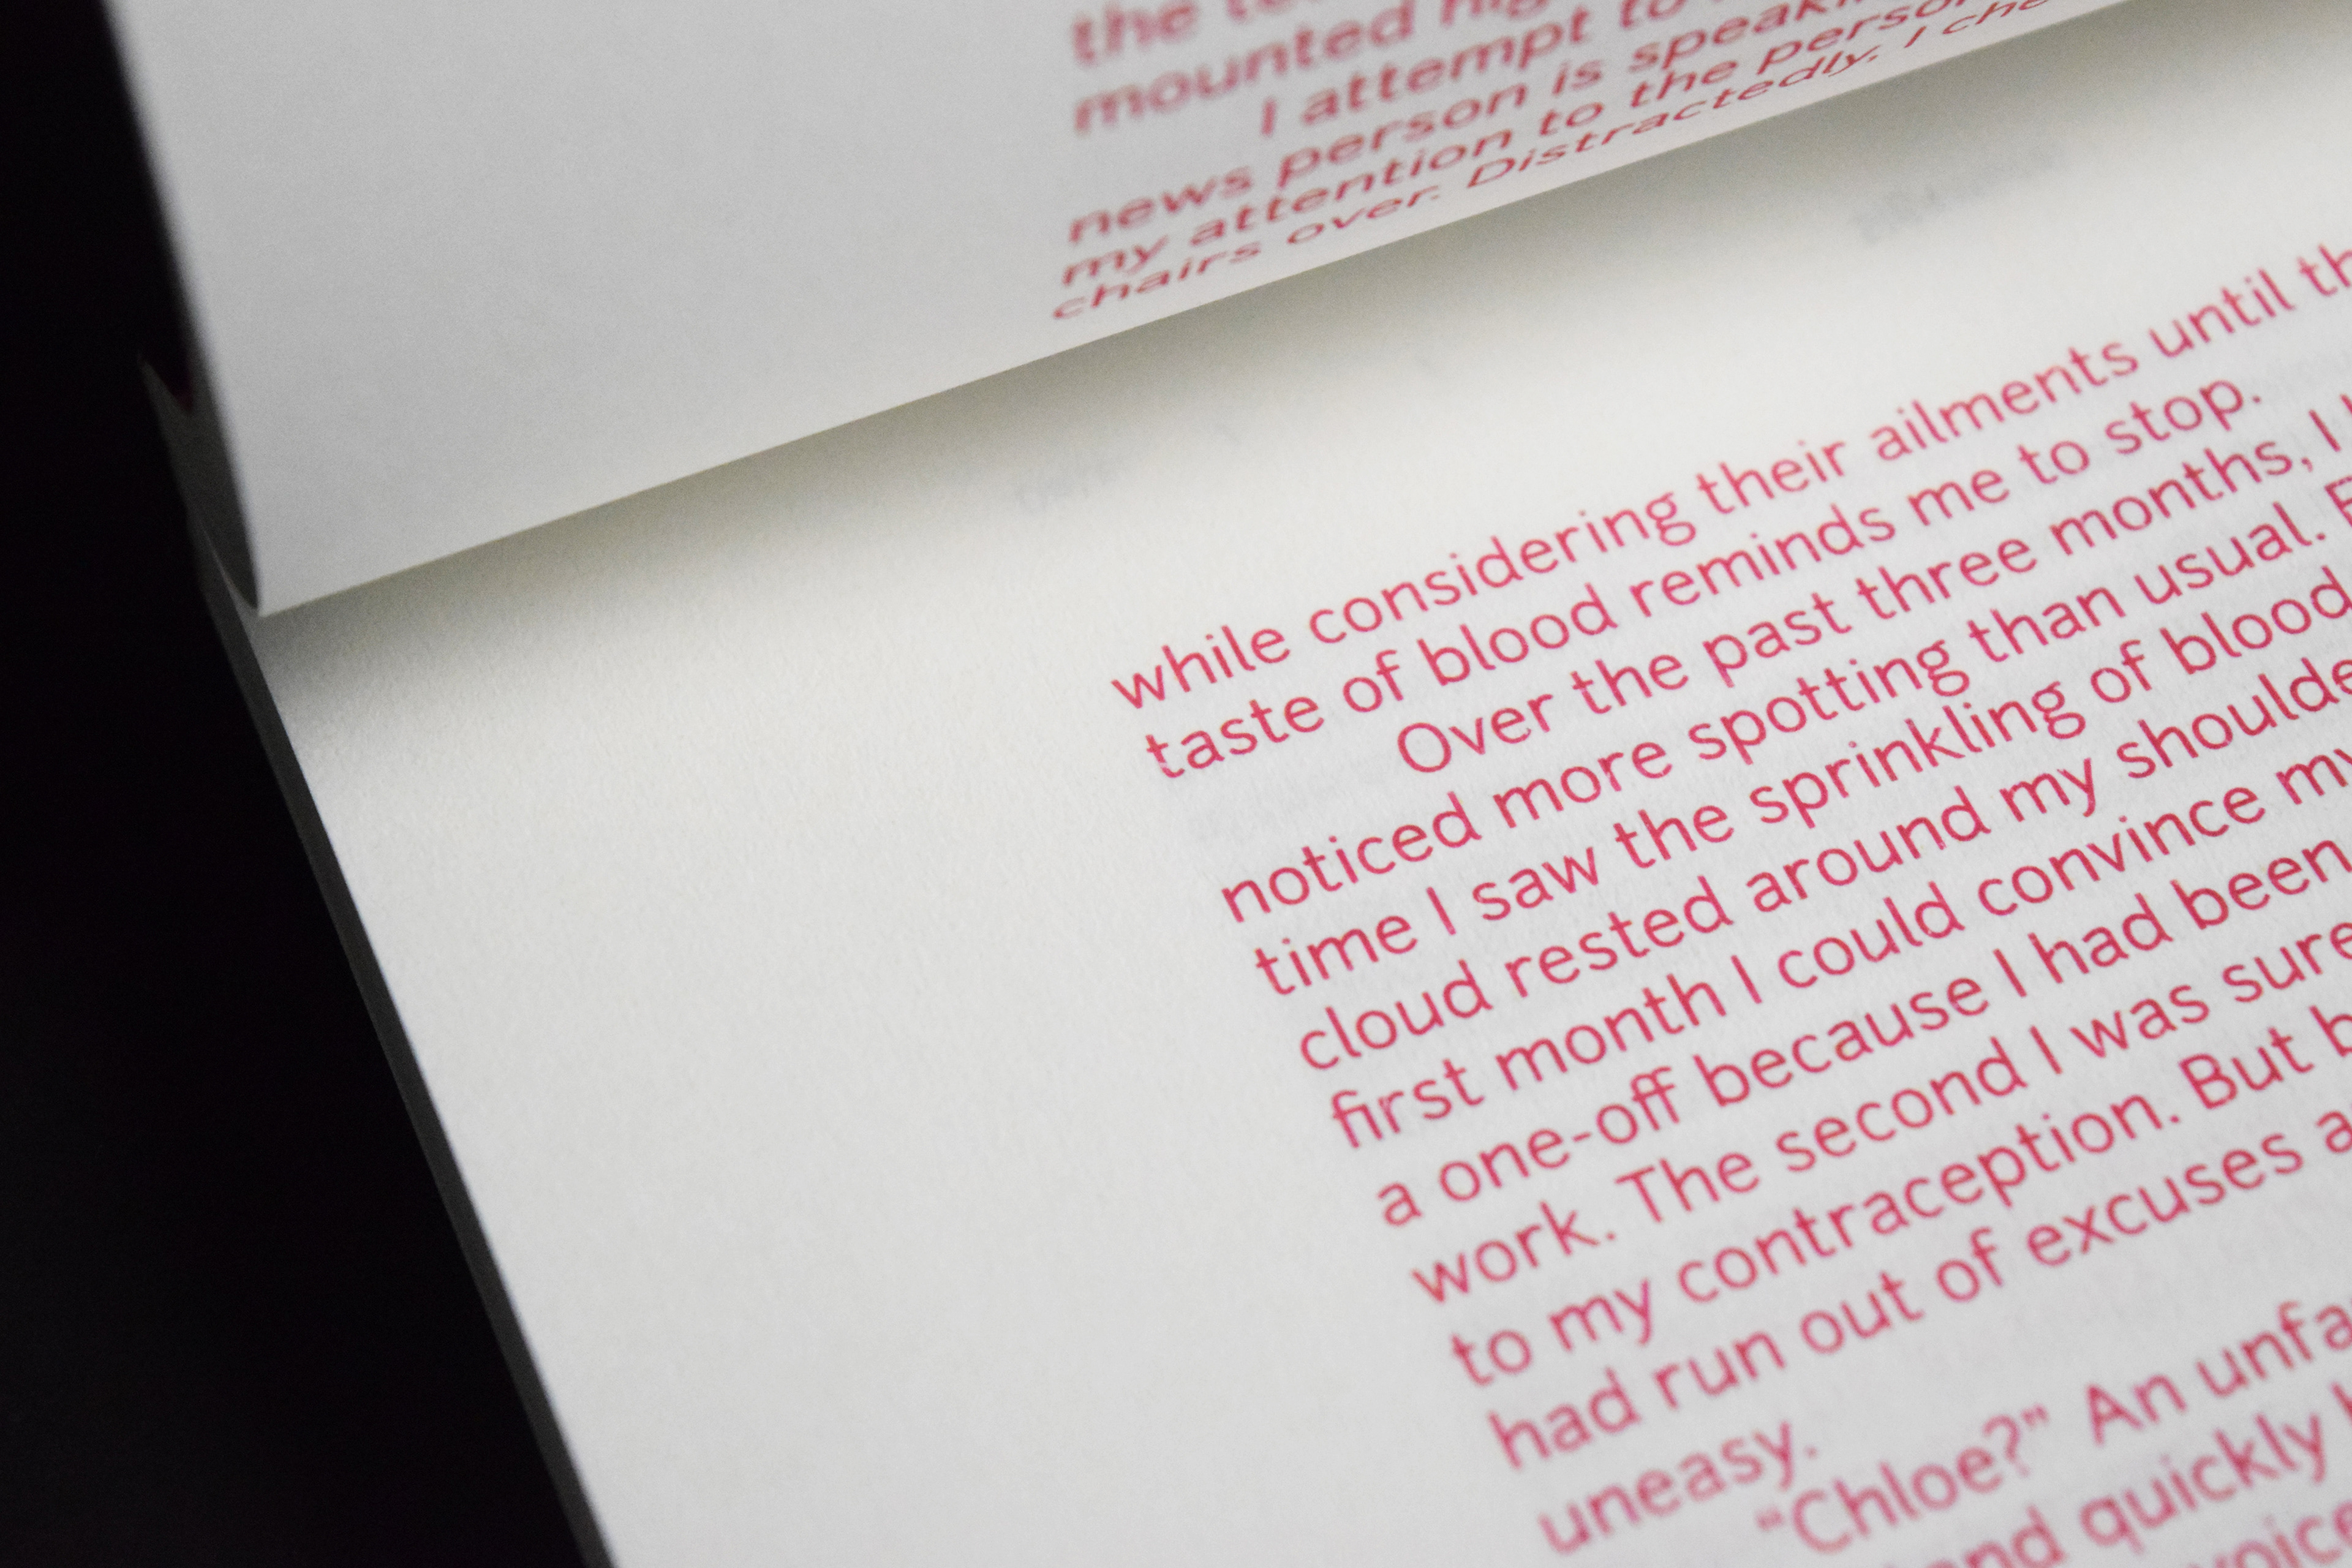 the
mounted
I attempt to
news person is speaki
my attention to the person
chairs over. Distractedly, I che
while considering their ailments until th
taste of blood reminds me to stop.
Over the past three months, I
noticed more spotting than usual. E
time I saw the sprinkling of blood
cloud rested around my shoulde
first month I could convince my
a one-off because I had been
work. The second I was sure
to my contraception. But b
had run out of excuses a
uneasy.
“Chloe?” An unfa
and quickly
voice